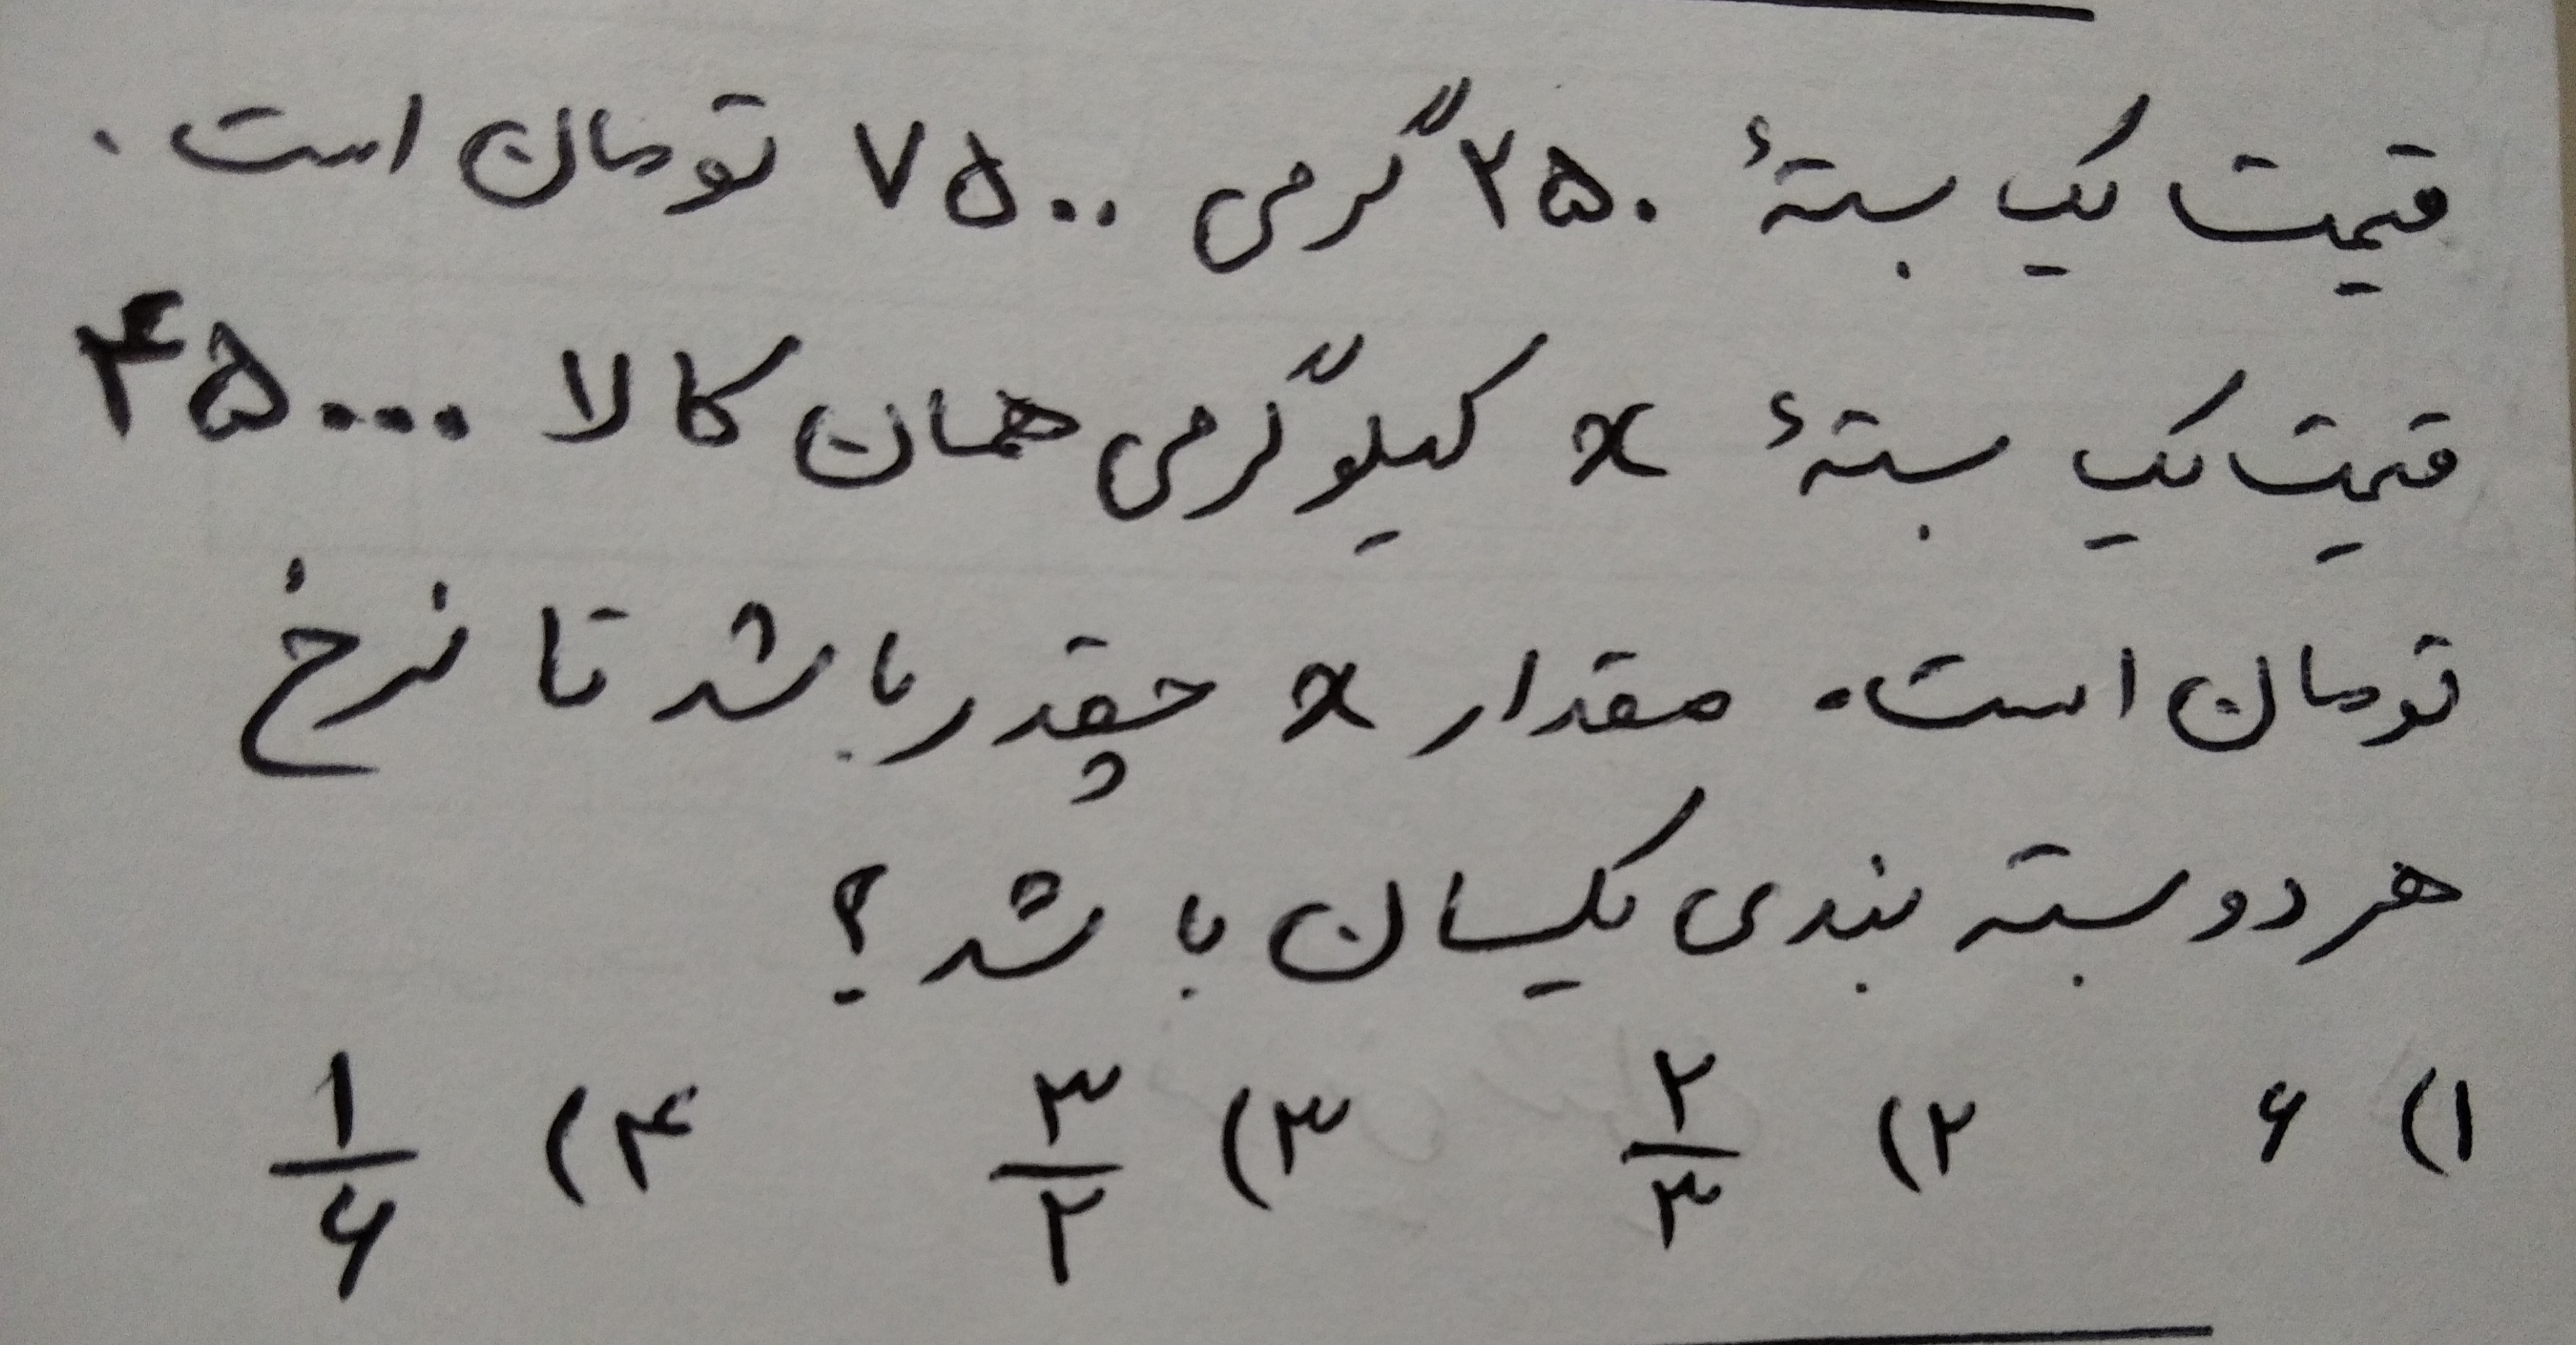 قیمت یک بستهٔ ۲۵۰ گرمی ۷۵۰۰ تومان است.
قیمت یک بستهٔ x کیلوگرمی همان کالا ۴۵۰۰۰
تومان است. مقدار x چقدر باشد تا نرخ
هر دو بسته بندی یکسان باشد؟
۱) ۶ ۲) ۲/۳ ۳) ۳/۲ ۴) ۱/۶